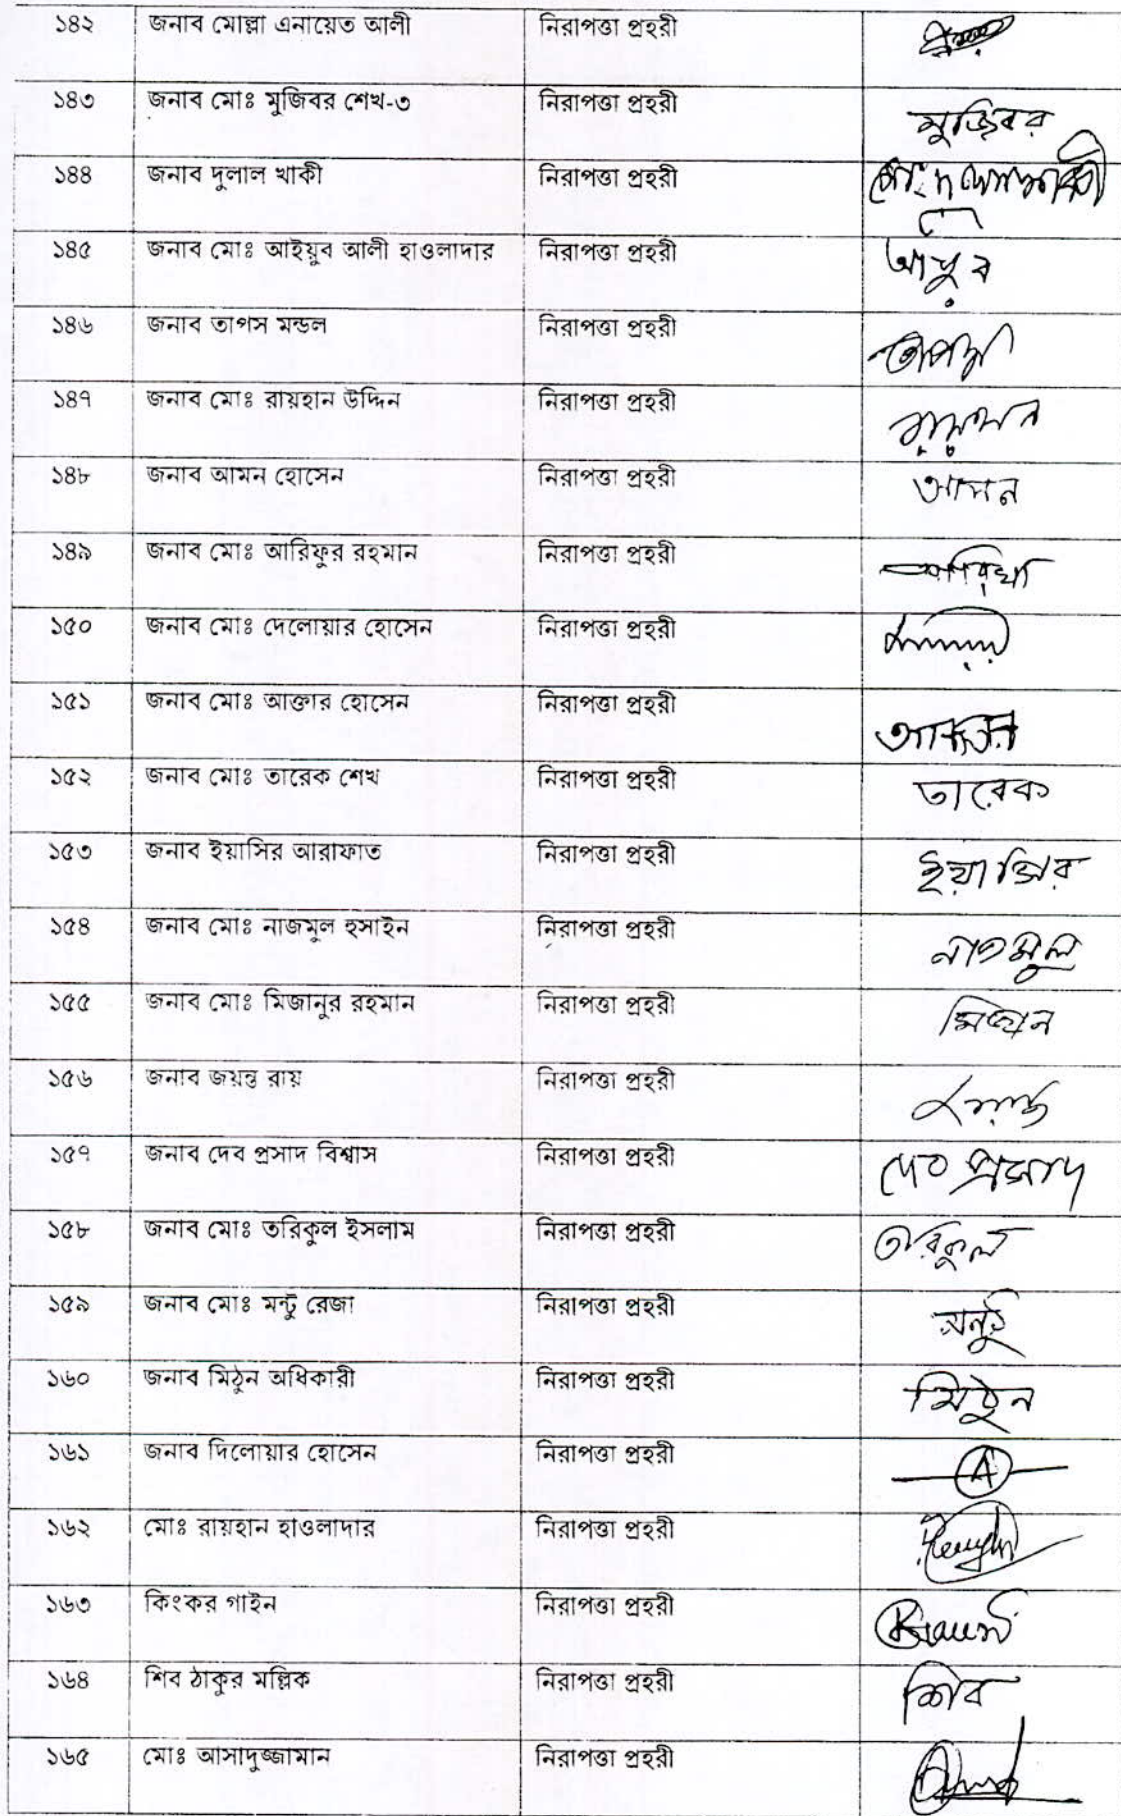 ১৪২ জনাব মোল্লা এনায়েত আলী নিরাপত্তা প্রহরী
১৪৩ জনাব মোঃ মুজিবর শেখ-৩ নিরাপত্তা প্রহরী মুজিবর
১৪৪ জনাব দুলাল খাকী নিরাপত্তা প্রহরী
১৪৫ জনাব মোঃ আইয়ুব আলী হাওলাদার নিরাপত্তা প্রহরী
১৪৬ জনাব তাপস মন্ডল নিরাপত্তা প্রহরী তাপস
১৪৭ জনাব মোঃ রায়হান উদ্দিন নিরাপত্তা প্রহরী
১৪৮ জনাব আমন হোসেন নিরাপত্তা প্রহরী আমন
১৪৯ জনাব মোঃ আরিফুর রহমান নিরাপত্তা প্রহরী
১৫০ জনাব মোঃ দেলোয়ার হোসেন নিরাপত্তা প্রহরী
১৫১ জনাব মোঃ আক্তার হোসেন নিরাপত্তা প্রহরী আক্তার
১৫২ জনাব মোঃ তারেক শেখ নিরাপত্তা প্রহরী তারেক
১৫৩ জনাব ইয়াসির আরাফাত নিরাপত্তা প্রহরী ইয়াসির
১৫৪ জনাব মোঃ নাজমুল হুসাইন নিরাপত্তা প্রহরী নাজমুল
১৫৫ জনাব মোঃ মিজানুর রহমান নিরাপত্তা প্রহরী মিজান
১৫৬ জনাব জয়ন্ত রায় নিরাপত্তা প্রহরী
১৫৭ জনাব দেব প্রসাদ বিশ্বাস নিরাপত্তা প্রহরী দেব প্রসাদ
১৫৮ জনাব মোঃ তরিকুল ইসলাম নিরাপত্তা প্রহরী তরিকুল
১৫৯ জনাব মোঃ মন্টু রেজা নিরাপত্তা প্রহরী মন্টু
১৬০ জনাব মিঠুন অধিকারী নিরাপত্তা প্রহরী মিঠুন
১৬১ জনাব দিলোয়ার হোসেন নিরাপত্তা প্রহরী A
১৬২ মোঃ রায়হান হাওলাদার নিরাপত্তা প্রহরী
১৬৩ কিংকর গাইন নিরাপত্তা প্রহরী
১৬৪ শিব ঠাকুর মল্লিক নিরাপত্তা প্রহরী শিব
১৬৫ মোঃ আসাদুজ্জামান নিরাপত্তা প্রহরী